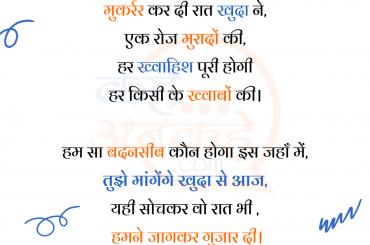 मुकर्रर कर दी रात खुदा ने,
एक रोज मुरादों की,
हर ख्वाहिश पूरी होगी
हर किसी के ख्वाबों की।
हम सा बदनसीब कौन होगा इस जहाँ में,
तुझे मांगेंगे खुदा से आज,
यही सोचकर वो रात भी ,
हमने जागकर गुजार दी।